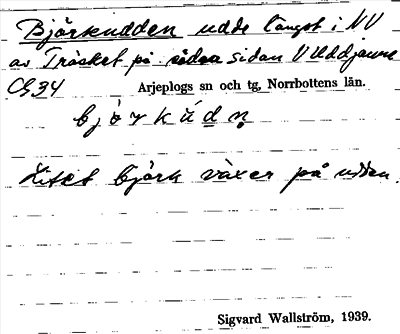 Björkudden udde längst i NV
av Träsket på södra sidan V Uddjaure
C9,34 Arjeplogs sn och tg, Norrbottens län.
bjọ̀rkúdņ
Litet björk växer på udden.
Sigvard Wallström, 1939.